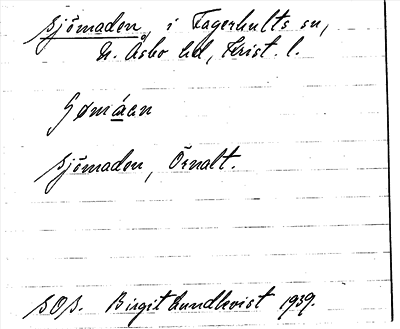 Sjömaden, i Fagerhults sn,
N. Åsbo hd, Krist. l.
Sømáen
Sjömaden, Örnalt.
SOS. Birgit Lundkvist 1939.